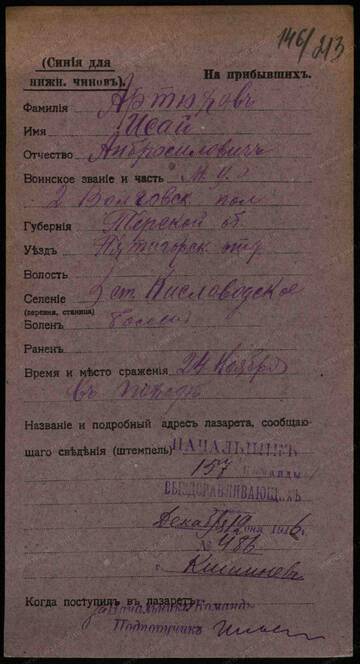 146/213
(Синія для
нижн. чиновъ).
На прибывшихъ.
Фамилія Артюховъ
Имя Исай
Отчество Амвросіевичъ
Воинское званіе и часть
2 Волговск пол
Губернія Терской об.
Уѣздъ Пятигорск
Волость
Селеніе ст. Кисловодское
(деревня, станица)
Боленъ болѣнъ
Раненъ
Время и мѣсто сраженія 24 Ноября
въ походѣ
Названіе и подробный адресъ лазарета, сообщаю-
щаго свѣдѣнія (штемпель) НАЧАЛЬНИКЪ
157 Команды
ВЫЗДОРАВЛИВАЮЩИХЪ
Декабря 1916
№ 486
г. Кишиневъ
Когда поступилъ въ лазаретъ
За Начальника Команды
Подпоручикъ